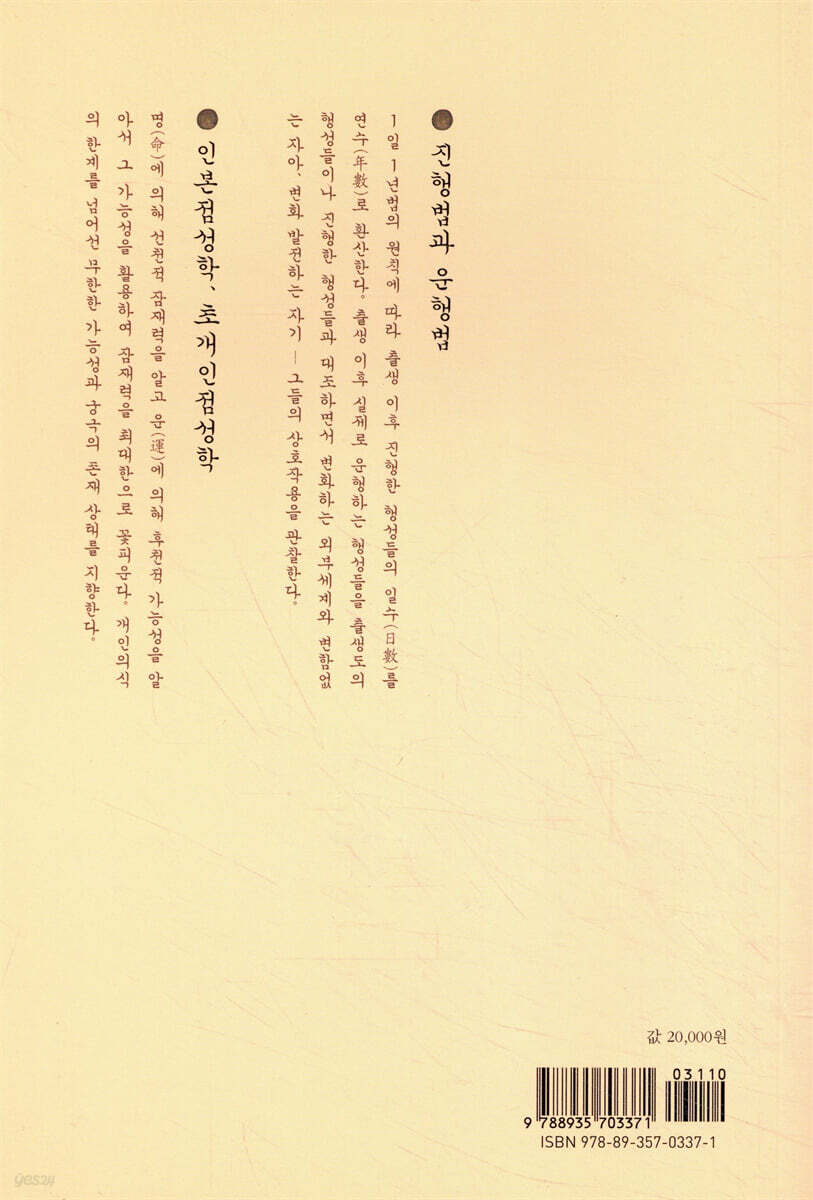 진행법과 운행법
1일 1년법의 원칙에 따라 출생 이후 진행한 행성들의 일수(日數)를
연수(年數)로 환산한다. 출생 이후 실제로 운행하는 행성들을 출생도의
행성들이나 진행한 행성들과 대조하면서 변화하는 외부세계와 변함없
는 자아, 변화 발전하는 자기 – 그들의 상호작용을 관찰한다.
인본점성학, 초개인점성학
명(命)에 의해 선천적 잠재력을 알고 운(運)에 의해 후천적 가능성을 알
아서 그 가능성을 활용하여 잠재력을 최대한으로 꽃피운다. 개인의식
의 한계를 넘어선 무한한 가능성과 궁극의 존재 상태를 지향한다.
값 20,000원
03110
9 788935 703371
ISBN 978-89-357-0337-1
yes24